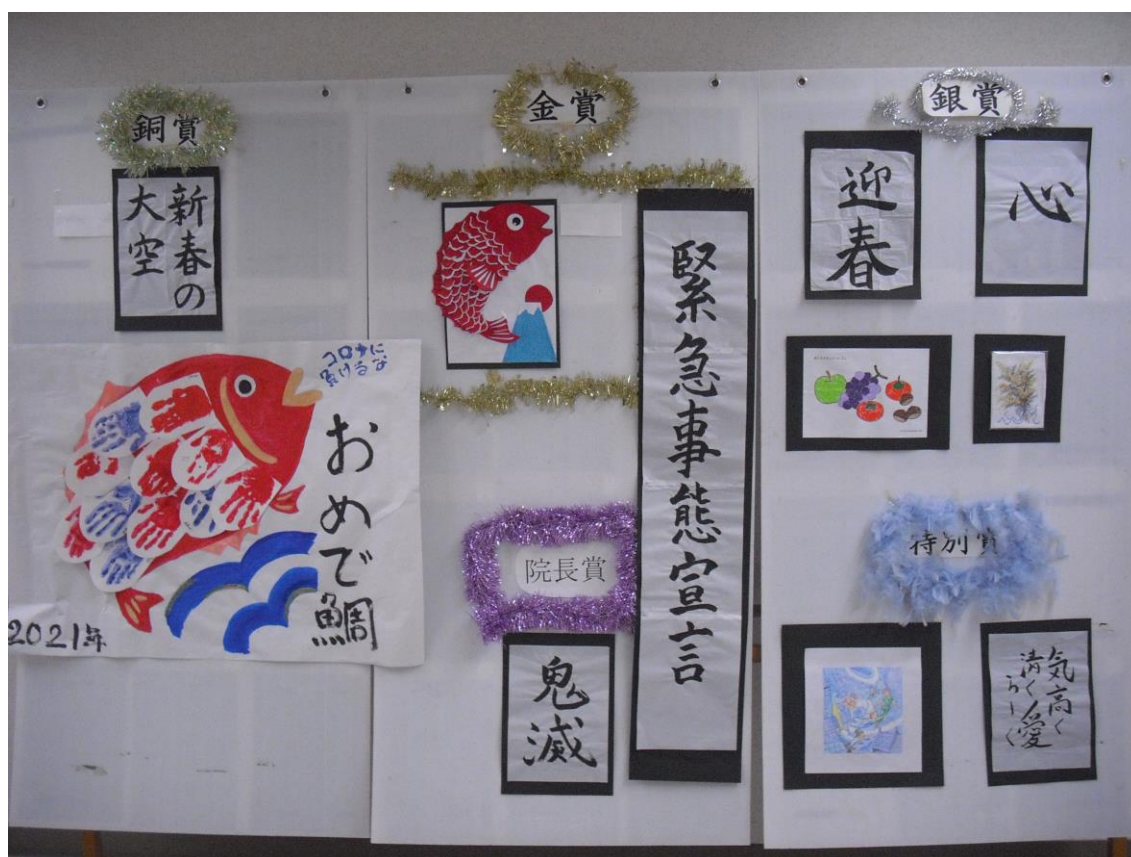 銅賞
新春の
大空
コロナに
負けるな
おめで鯛
2021年
金賞
緊急事態宣言
院長賞
鬼滅
銀賞
迎春
心
特別賞
気高く
清く愛
らしく